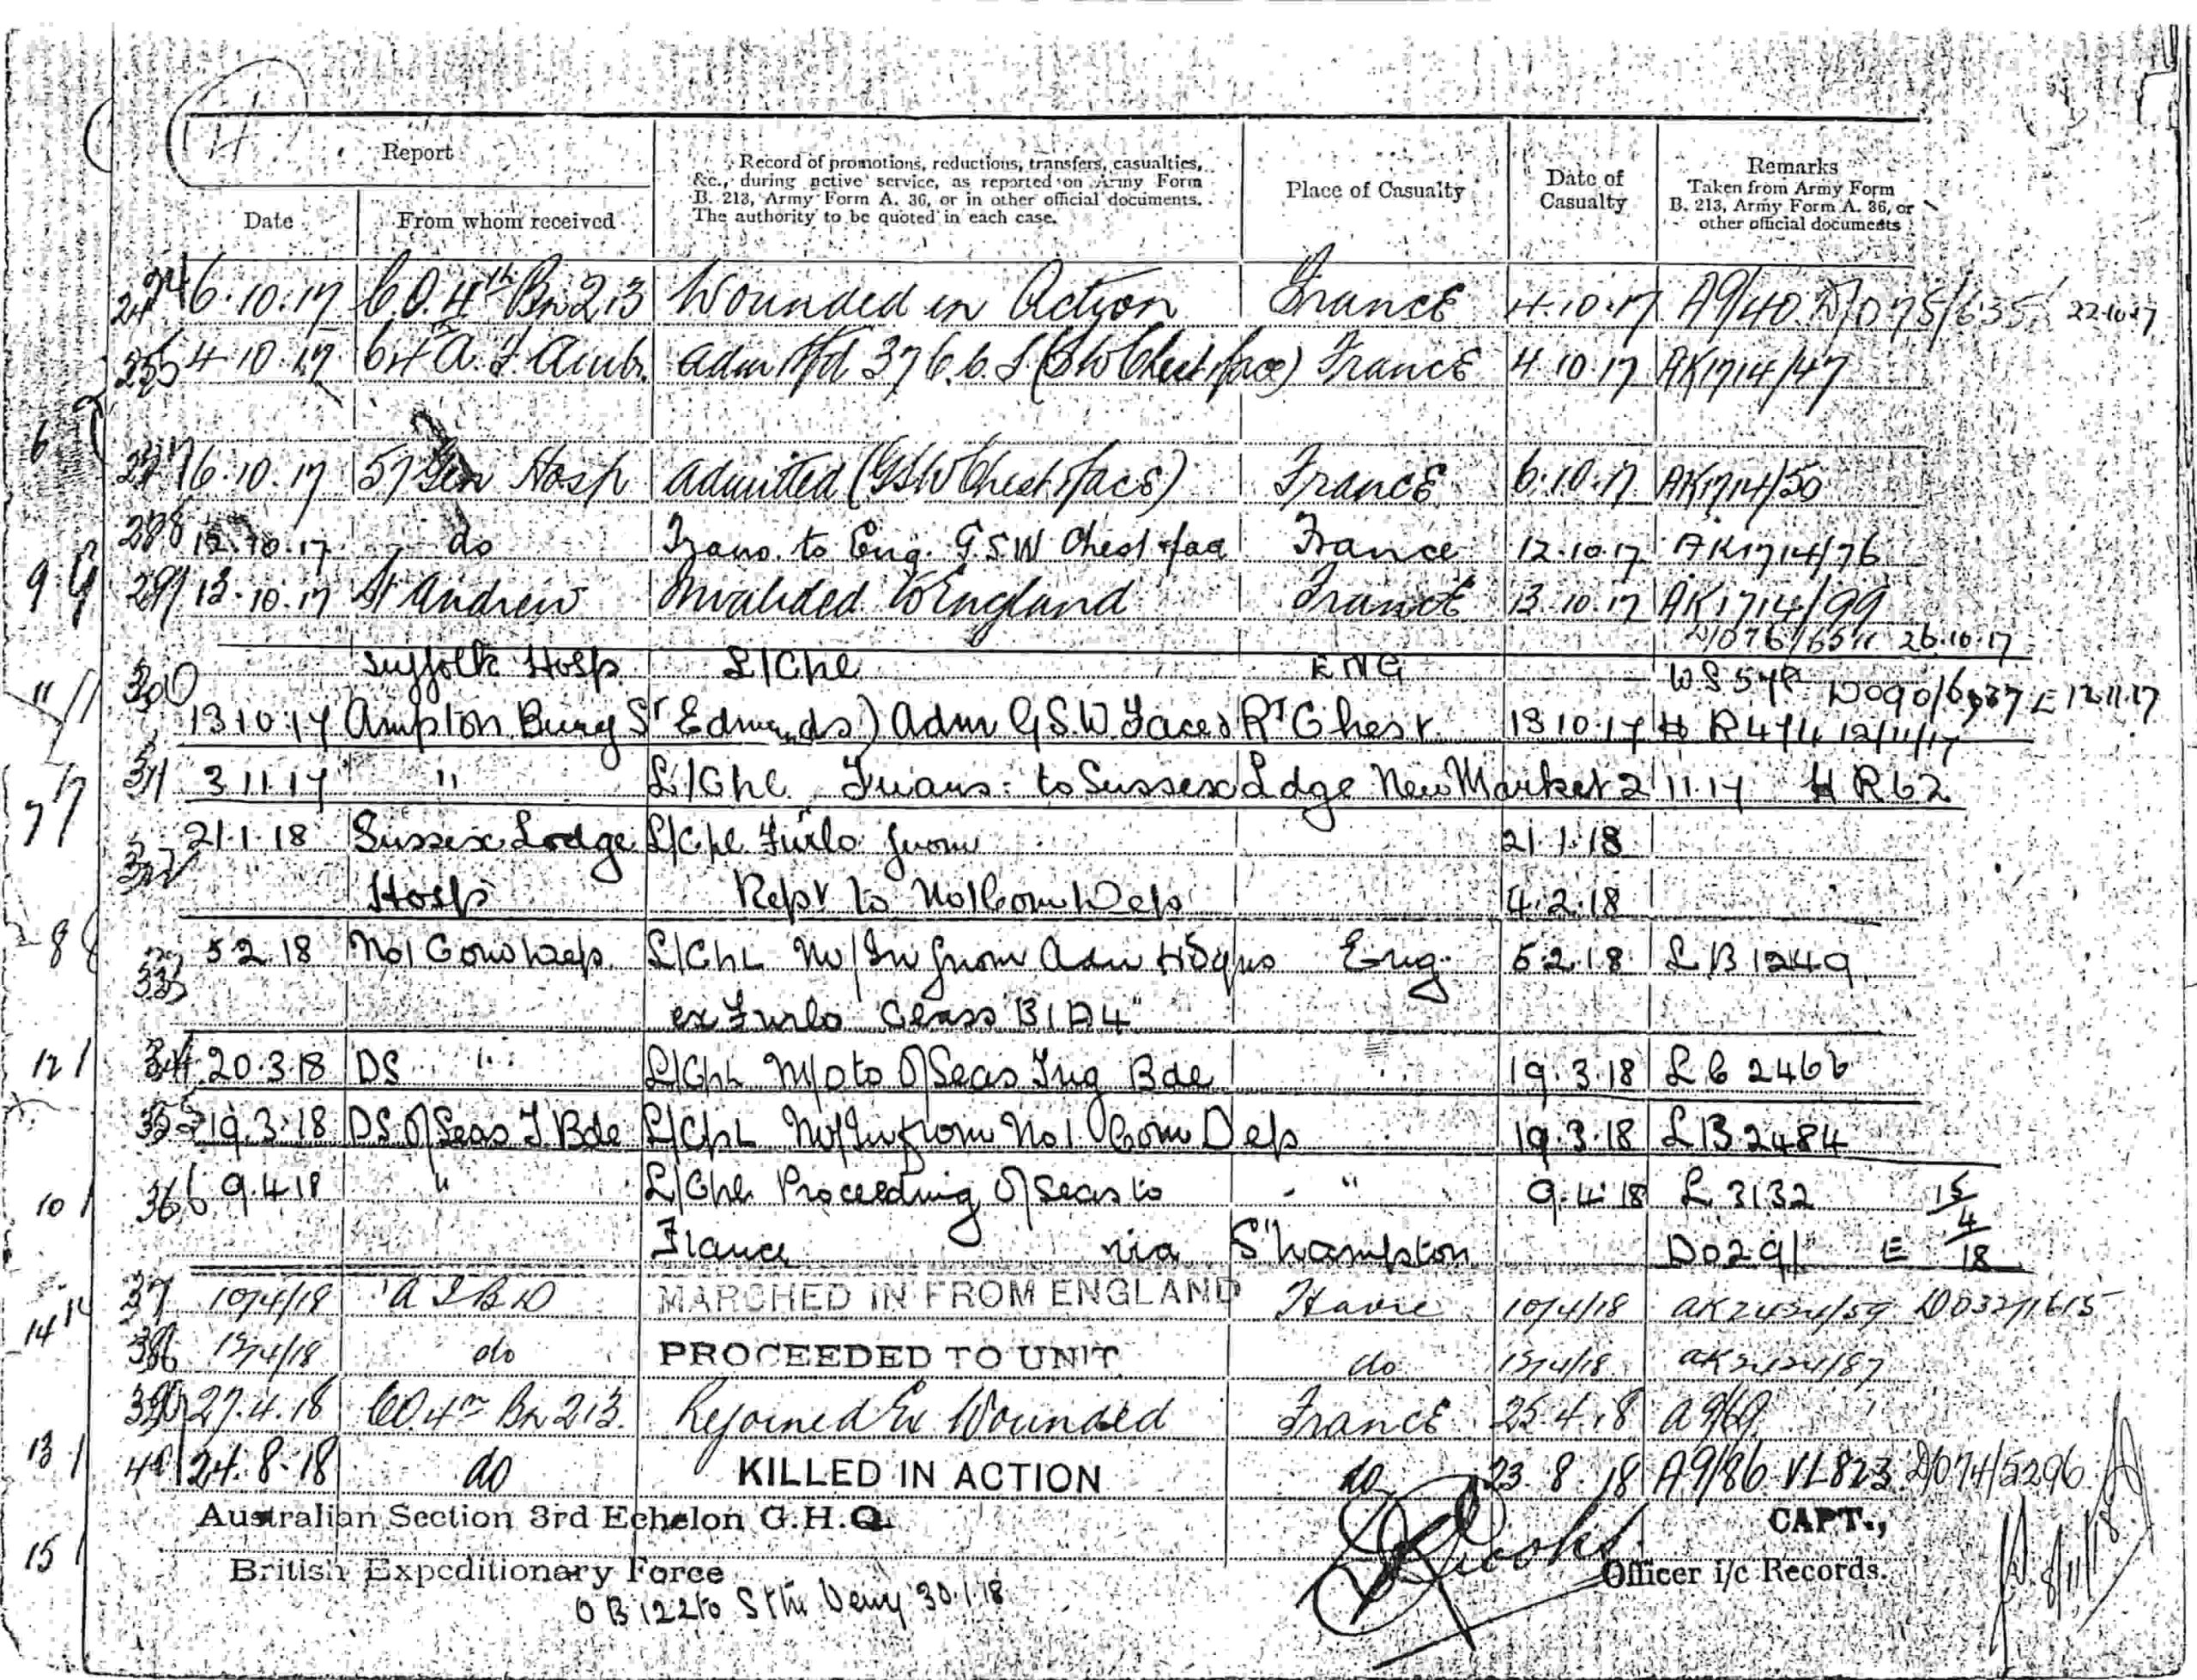 Report
Record of promotions, reductions, transfers, casualties,
&c., during active service, as reported on Army Form
B. 213, Army Form A. 36, or in other official documents.
The authority to be quoted in each case.
Place of Casualty
Date of
Casualty
Remarks
Taken from Army Form
B. 213, Army Form A. 36, or
other official documents
Date
From whom received
6.10.17 C.O. 4th Bn 213 Wounded in Action France 4.10.17 A9/40. 22.10.17
4.10.17 A. F. Amb. adm 37 C.C.S (GSW Chest face) France 4.10.17 AK1714/47
6.10.17 57 Gen Hosp admitted (GSW Chest face) France 6.10.17 AK1714/50
12.10.17 do Trans. to Eng. GSW Chest face France 12.10.17 AK1714/76
13.10.17 St Andrew Invalided to England France 13.10.17 AK1714/99
26.10.17
Suffolk Hosp L/Cpl ENG
13 10 17 Ampton Bury St Edmunds) Adm G.S.W. Face & Rt Chest 13 10 17 12/11/17 E 12.11.17
31 3 11 17 " L/Cpl. Trans: to Sussex Ldge New Market 2 11.17 H R62
21.1.18 Sussex Lodge L/Cpl. Furlo from 21.1.18
Hosp Rept to No 1 Com Dep 4.2.18
5 2 18 No 1 Com Dep. L/Cpl M/In from Adm Hdqrs Eng. 5.2.18 LB 1249
ex Furlo Class "B1A4"
34 20.3.18 DS " L/Cpl M/O to O/Seas Trg Bde 19.3.18 LC 2466
35 19.3.18 DS O/Seas T. Bde L/Cpl M/In from No 1 Com Dep 19.3.18 LB 2484
36 9.4.18 " L/Cpl Proceeding O/Seas to " 9.4.18 L 3132 15/4/18
France via S'hampton DO 291 E
37 10/4/18 A I B D MARCHED IN FROM ENGLAND Havre 10/4/18 AK2424/59
do PROCEEDED TO UNIT do AK2424/87
27.4.18 CO. 4th Bn 213. Rejoined Ex Wounded France 25.4.18 A9/69
24.8.18 do KILLED IN ACTION do 23.8.18 A9/86 VL823 DO74/5296
Australian Section 3rd Echelon G.H.Q.
CAPT.,
British Expeditionary Force
Officer i/c Records.
30.1.18